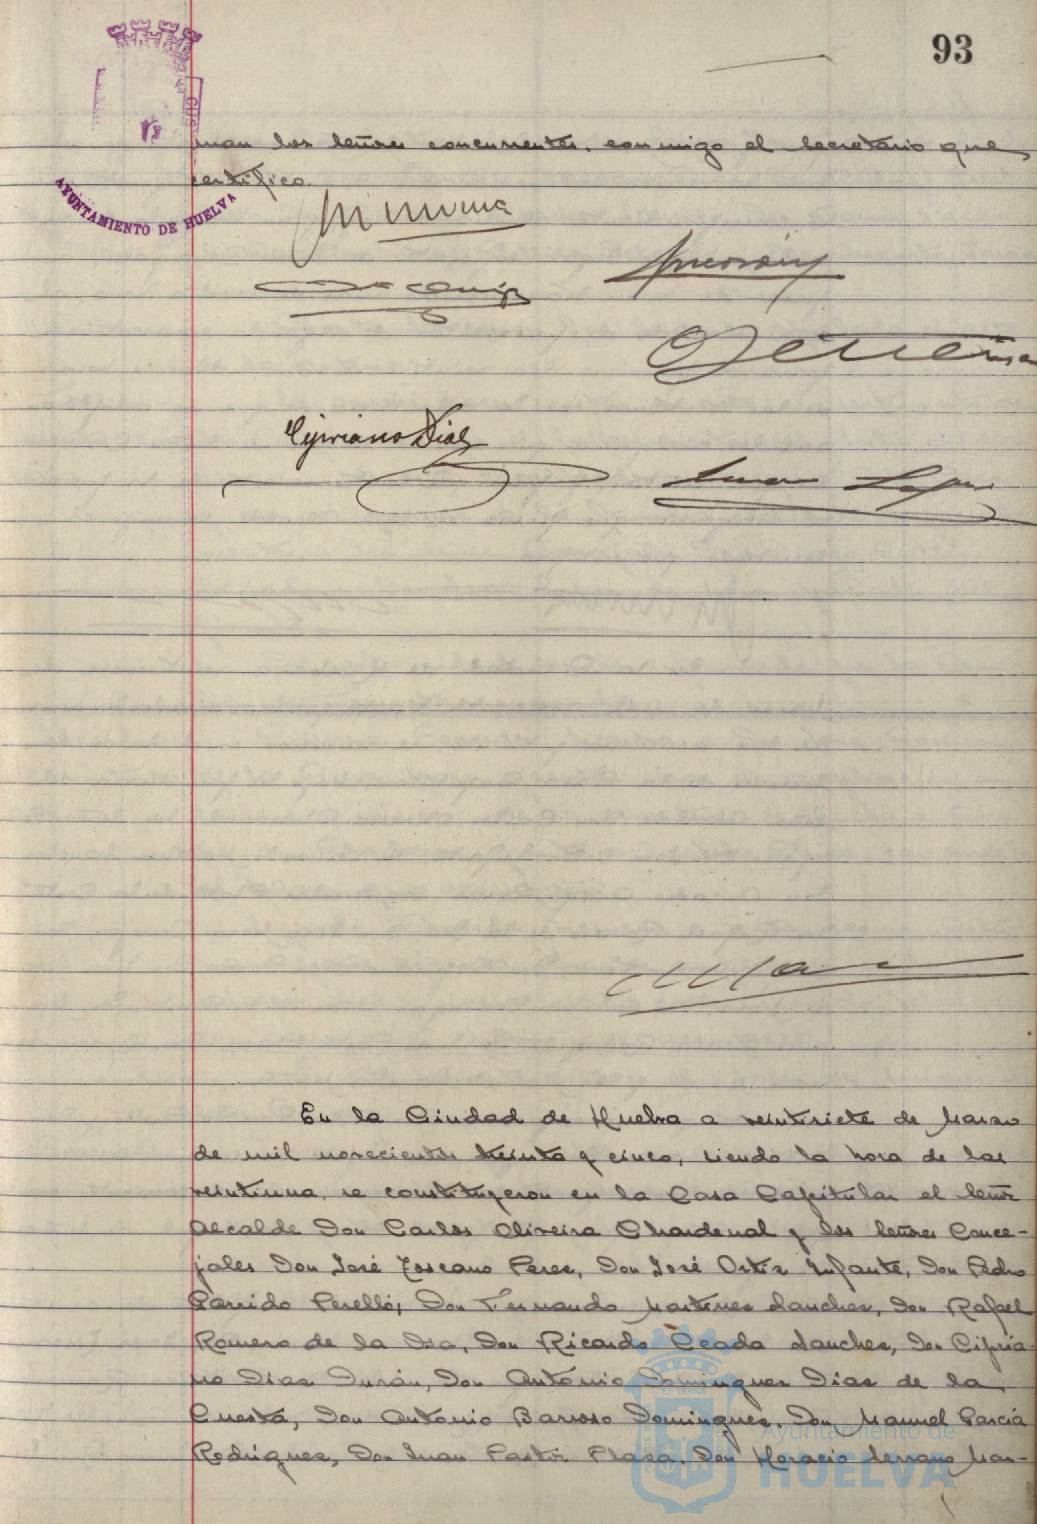 93
man los señores concurrentes, conmigo el secretario que
certifico.
AYUNTAMIENTO DE HUELVA
Cipriano Diaz
En la Ciudad de Huelva a veintisiete de Marzo
de mil novecientos treinta y cinco, siendo la hora de las
veintiuna, se constituyeron en la Casa Capitular el señor
Alcalde Don Carlos Oliveira Chardenal y los señores Conce-
jales Don José Toscano Perez, Don José Ortiz Infante, Don Pedro
Garrido Perelló, Don Fernando Martinez Sanchez, Don Rafael
Romero de la Osa, Don Ricardo Ceada Sanchez, Don Cipria-
no Diaz Durán, Don Antonio Dominguez Diaz de la
Cuesta, Don Antonio Barroso Dominguez, Don Manuel Garcia
Rodriguez, Don Juan Pastor Plaza, Don Horacio Serrano Mar-
Ayuntamiento de
HUELVA